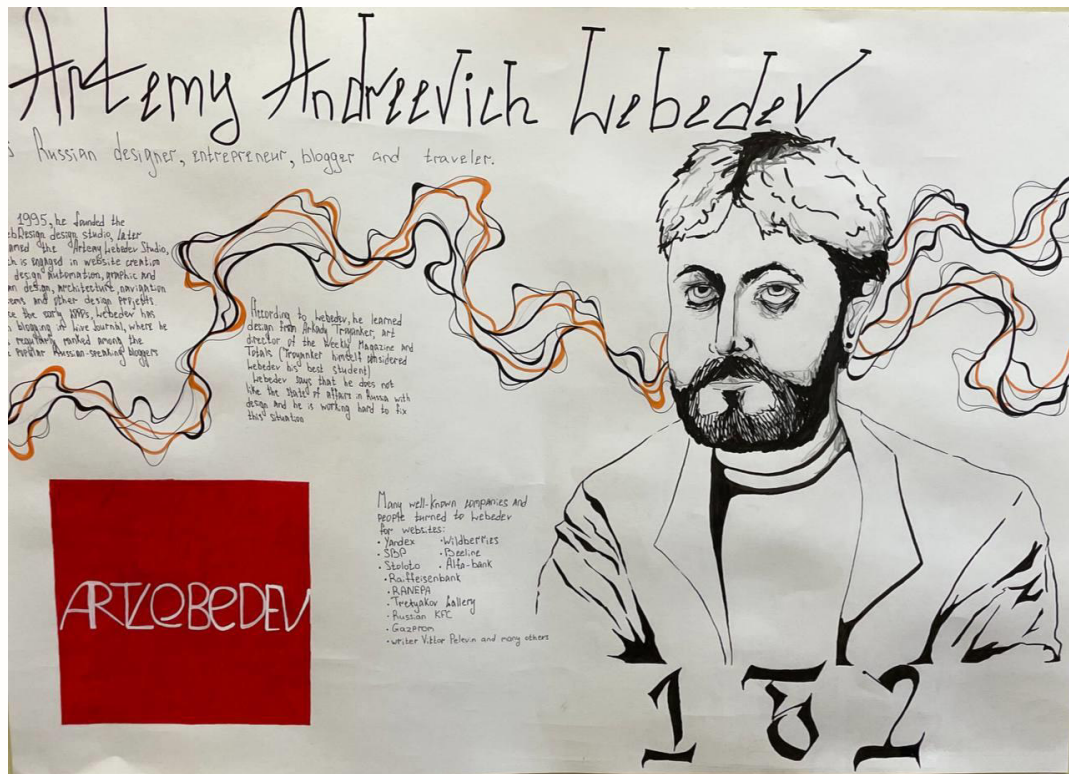 Artemy Andreevich Lebedev
Russian designer, entrepreneur, blogger and traveler.
1995, he founded the
ebDesign design studio, later
amed the Artemy Lebedev Studio,
ch is engaged in website creation
design automation, graphic and
an design, architecture, navigation
ems and other design projects.
ce the early 2000s, Lebedev has
n blogging in Live Journal, where he
regularly ranked among the
popular Russian-speaking bloggers
According to Lebedev, he learned
design from Arkady Troyanker, art
director of the Weekly Magazine and
Totals (Troyanker himself considered
Lebedev his best student)
Lebedev says that he does not
like the state of affairs in Russa with
design and he is working hard to fix
this situation
ARTLEBEDEV
Many well-known companies and
people turned to Lebedev
for websites:
• Yandex • Wildberries
• SBP • Beeline
• Stoloto • Alfa-bank
• Raiffeisenbank
• RANEPA
• Tretyakov Gallery
• Russian KFC
• Gazprom
• writer Viktor Pelevin and many others